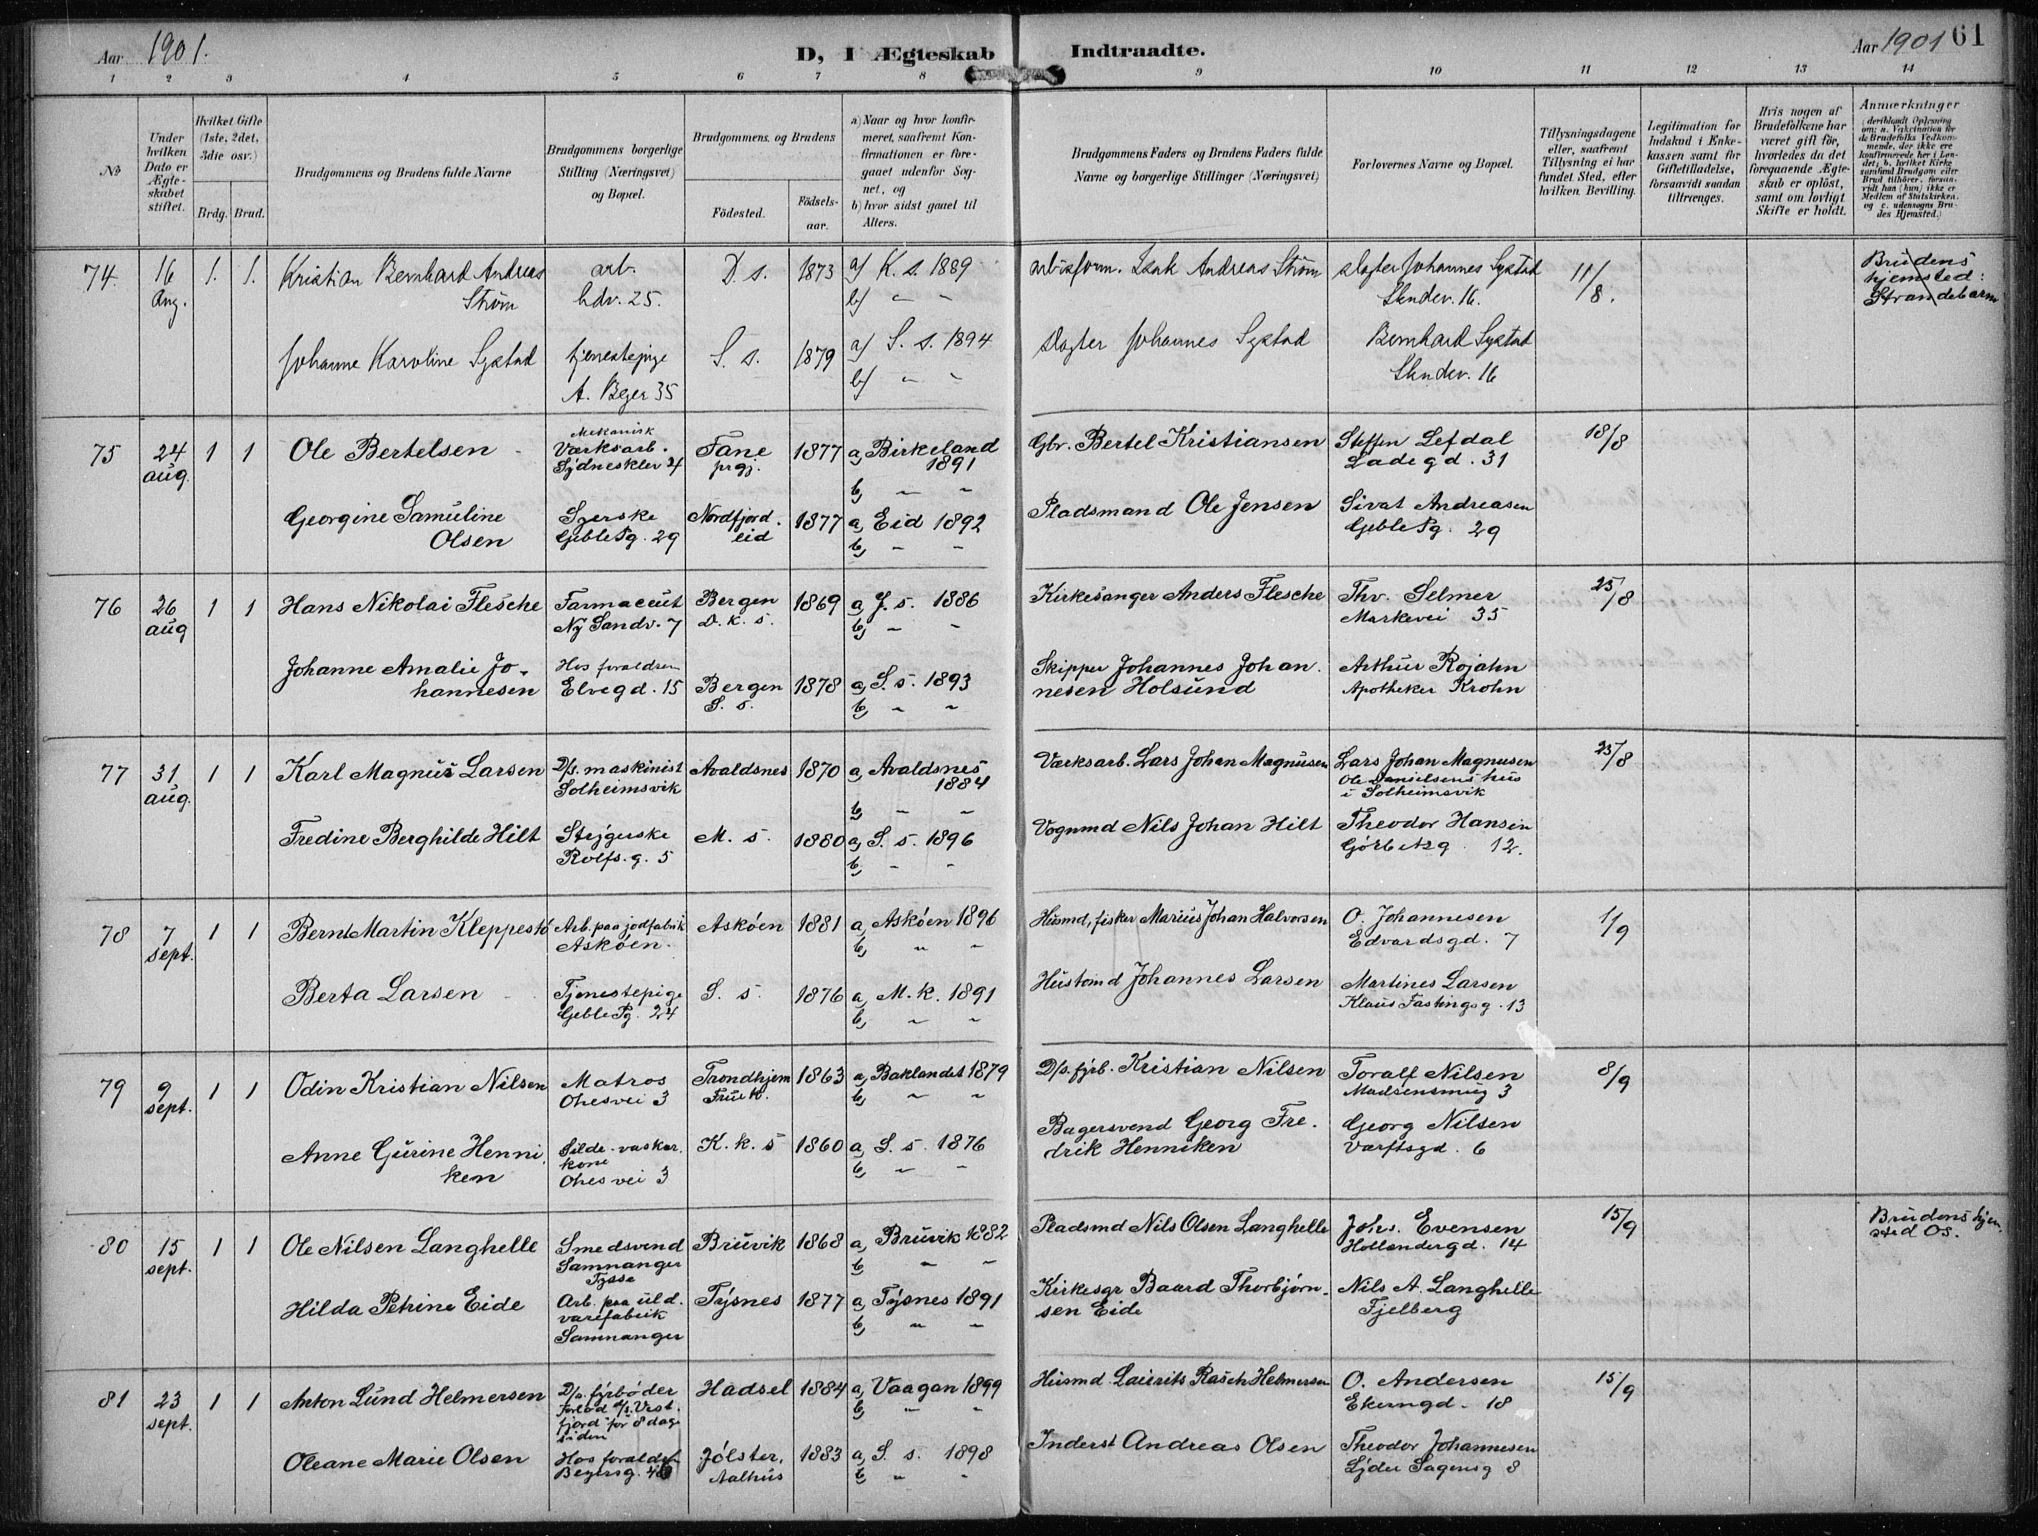 Aar 1901. D, I Ægteskab Indtraadte. Aar 1901 61
1 2 3 4 5 6 7 8 9 10 11 12 13 14
№
Under hvilken Dato er Ægteskabet stiftet.
Hvilket Gifte (1ste, 2det, 3die osv.)
Brdg. Brud.
Brudgommens og Brudens fulde Navne
Brudgommens borgerlige Stilling (Næringsvei) og Bopæl.
Brudgommens og Brudens
Födested. Födselsaar.
a) Naar og hvor konfirmeret, saafremt Konfirmationen er foregaaet udenfor Sognet, og
b) hvor sidst gaaet til Alters.
Brudgommens Faders og Brudens Faders fulde Navne og borgerlige Stillinger (Næringsvei)
Forlovernes Navne og Bopæl.
Tillysningsdagene eller, saafremt Tillysning ei har fundet Sted, efter hvilken Bevilling.
Legitimation for Indskud i Enkekassen samt for Giftetilladelse, forsaavidt saadan tiltrænges.
Hvis nogen af Brudefolkene har været gift för, hvorledes da det foregaaende Ægteskab er oplöst, samt om lovligt Skifte er holdt.
Anmærkninger
74. 16 Aug. 1. 1. Kristian Bernhard Andreas Strøm arb. Ldv. 25. D. s. 1873 a) K. s. 1889 b) " " arbsform. Isak Andreas Strøm slagter Johannes Systad Skudev. 16. 11/8. Brudens hjemsted: Strandebarm
Johanne Karoline Systad tjenestepige A. Beyer 35 S. s. 1879 a) S. s. 1894 b) " " slagter Johannes Systad Bernhard Systad Skudev. 16
75 24 aug. 1 1 Ole Bertelsen Mekanisk Værksarb. Sydneskler 24 Fane prgj. 1877 a, Birkeland 1891 b, " " Gbr. Bertel Kristiansen Steffen Lefdal Ladegd. 31 18/8
Georgine Samuline Olsen Syerske Geble Pg. 29 Nordfjordeid 1877 a, Eid 1892 b, " " Pladsmand Ole Jensen Sivat Andreasen Geble Pg. 29
76 26 aug 1 1 Hans Nikolai Flesche Farmaceut Ny Sandv. 7 Bergen D. k. s. 1869 a, J. s. 1886 b, " " Kirkesanger Anders Flesche Thv. Selmer Markevei 35 25/8
Johanne Amalie Johannesen Hos forældren Elvegd. 15 Bergen S. s. 1878 a, S. s. 1893 b, " " Skipper Johannes Johannesen Holsund Arthur Rojahn Apotheker Krohn
77 31 aug. 1 1 Karl Magnus Larsen D/s. maskinist Solheimsvik Avaldsnes 1870 a, Avaldsnes 1884 b, " " Værksarb. Lars Johan Magnusen Lars Johan Magnusen Ole Danielsens hus i Solheimsvik 25/8
Fredine Berghilde Hilt Strygerske Rolfs. g. 5 M. s. 1880 a, S. s. 1896 b, " " Vognmd Nils Johan Hilt Theodor Hansen 12.
78 7 sept. 1 1 Bernt Martin Kleppestø Arb. paa jodfabrik Askøen. Askøen 1881 a, Askøen 1896 b, " " Husmd, fisker Marius Johan Halvorsen O. Johannesen Edvardsgd. 7 1/9
Berta Larsen Tjenestepige Geble Pg. 24 S. s. 1876 a, M. k. 1891 b, " " Hustomd Johannes Larsen Martines Larsen Klaus Fastingsg. 13
79 9 sept. 1 1 Odin Kristian Nilsen Matros Ohesvei 3 Trondhjem Frue k. 1863 a, Baklandet 1879 b, " " D/s. fyrb. Kristian Nilsen Toralf Nilsen Madsensmug 3 8/9
Anne Gurine Henniken Silde-vaskerkone Ohesvei 3 K. k. s 1860 a, S. s. 1876 b, " " Bagersvend Georg Fredrik Henniken Georg Nilsen Værftsgd. 6
80 15 sept. 1 1 Ole Nilsen Langhelle Smedsvend Samnanger Tysse Bruvik 1868 a, Bruvik 1882 b, " " Pladsmd Nils Olsen Langhelle Johs. Evensen Hollendergd. 14 15/9 Brudens hjemsted Os.
Hilda Petrine Eide Arb. paa uldvarefabrik Samnanger Tysnes 1877 a, Tysnes 1891 b, " " Kirkesgr Baard Thorbjørnsen Eide Nils A. Langhelle Fjelberg
81 23 sept. 1 1 Anton Lund Helmersen D/s. fyrbøder forlod d/s. Vestfjord for 8 dage siden Hadsel 1884 a, Vaagan 1899 b, " " Husmd. Laurits Rasch Helmersen O. Andersen Ekerngd. 18 15/9
Oleane Marie Olsen Hos forældre Beyersg. Jølster, Aalhus 1883 a, S. s. 1898 b, " " Inderst Andreas Olsen Theodor Johannesen Lyder Sagensg 8